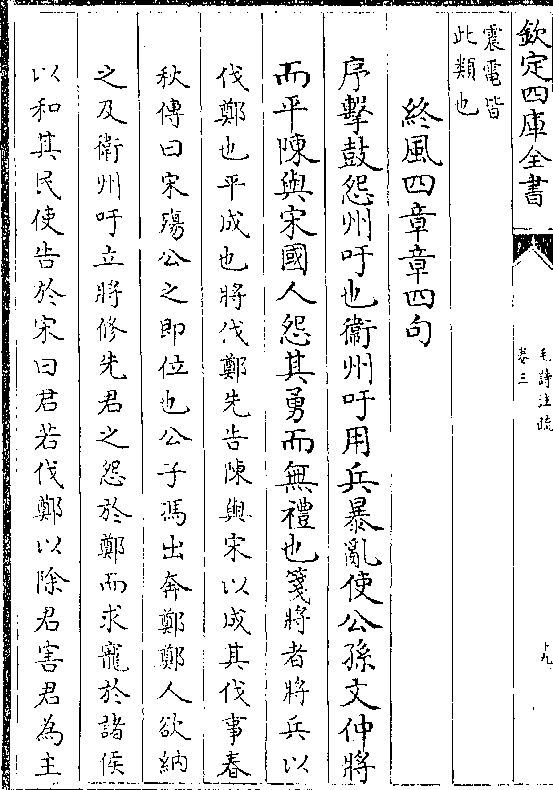 欽定四庫全書
毛詩注疏
卷三
十九
震電皆
此類也
終風四章章四句
序擊鼓怨州吁也衞州吁用兵暴亂使公孫文仲將
而平陳與宋國人怨其勇而無禮也箋將者將兵以
伐鄭也平成也將伐鄭先告陳與宋以成其伐事春
秋傳曰宋殤公之即位也公子馮出奔鄭鄭人欲納
之及衞州吁立將修先君之怨於鄭而求寵於諸侯
以和其民使告於宋曰君若伐鄭以除君害君為主